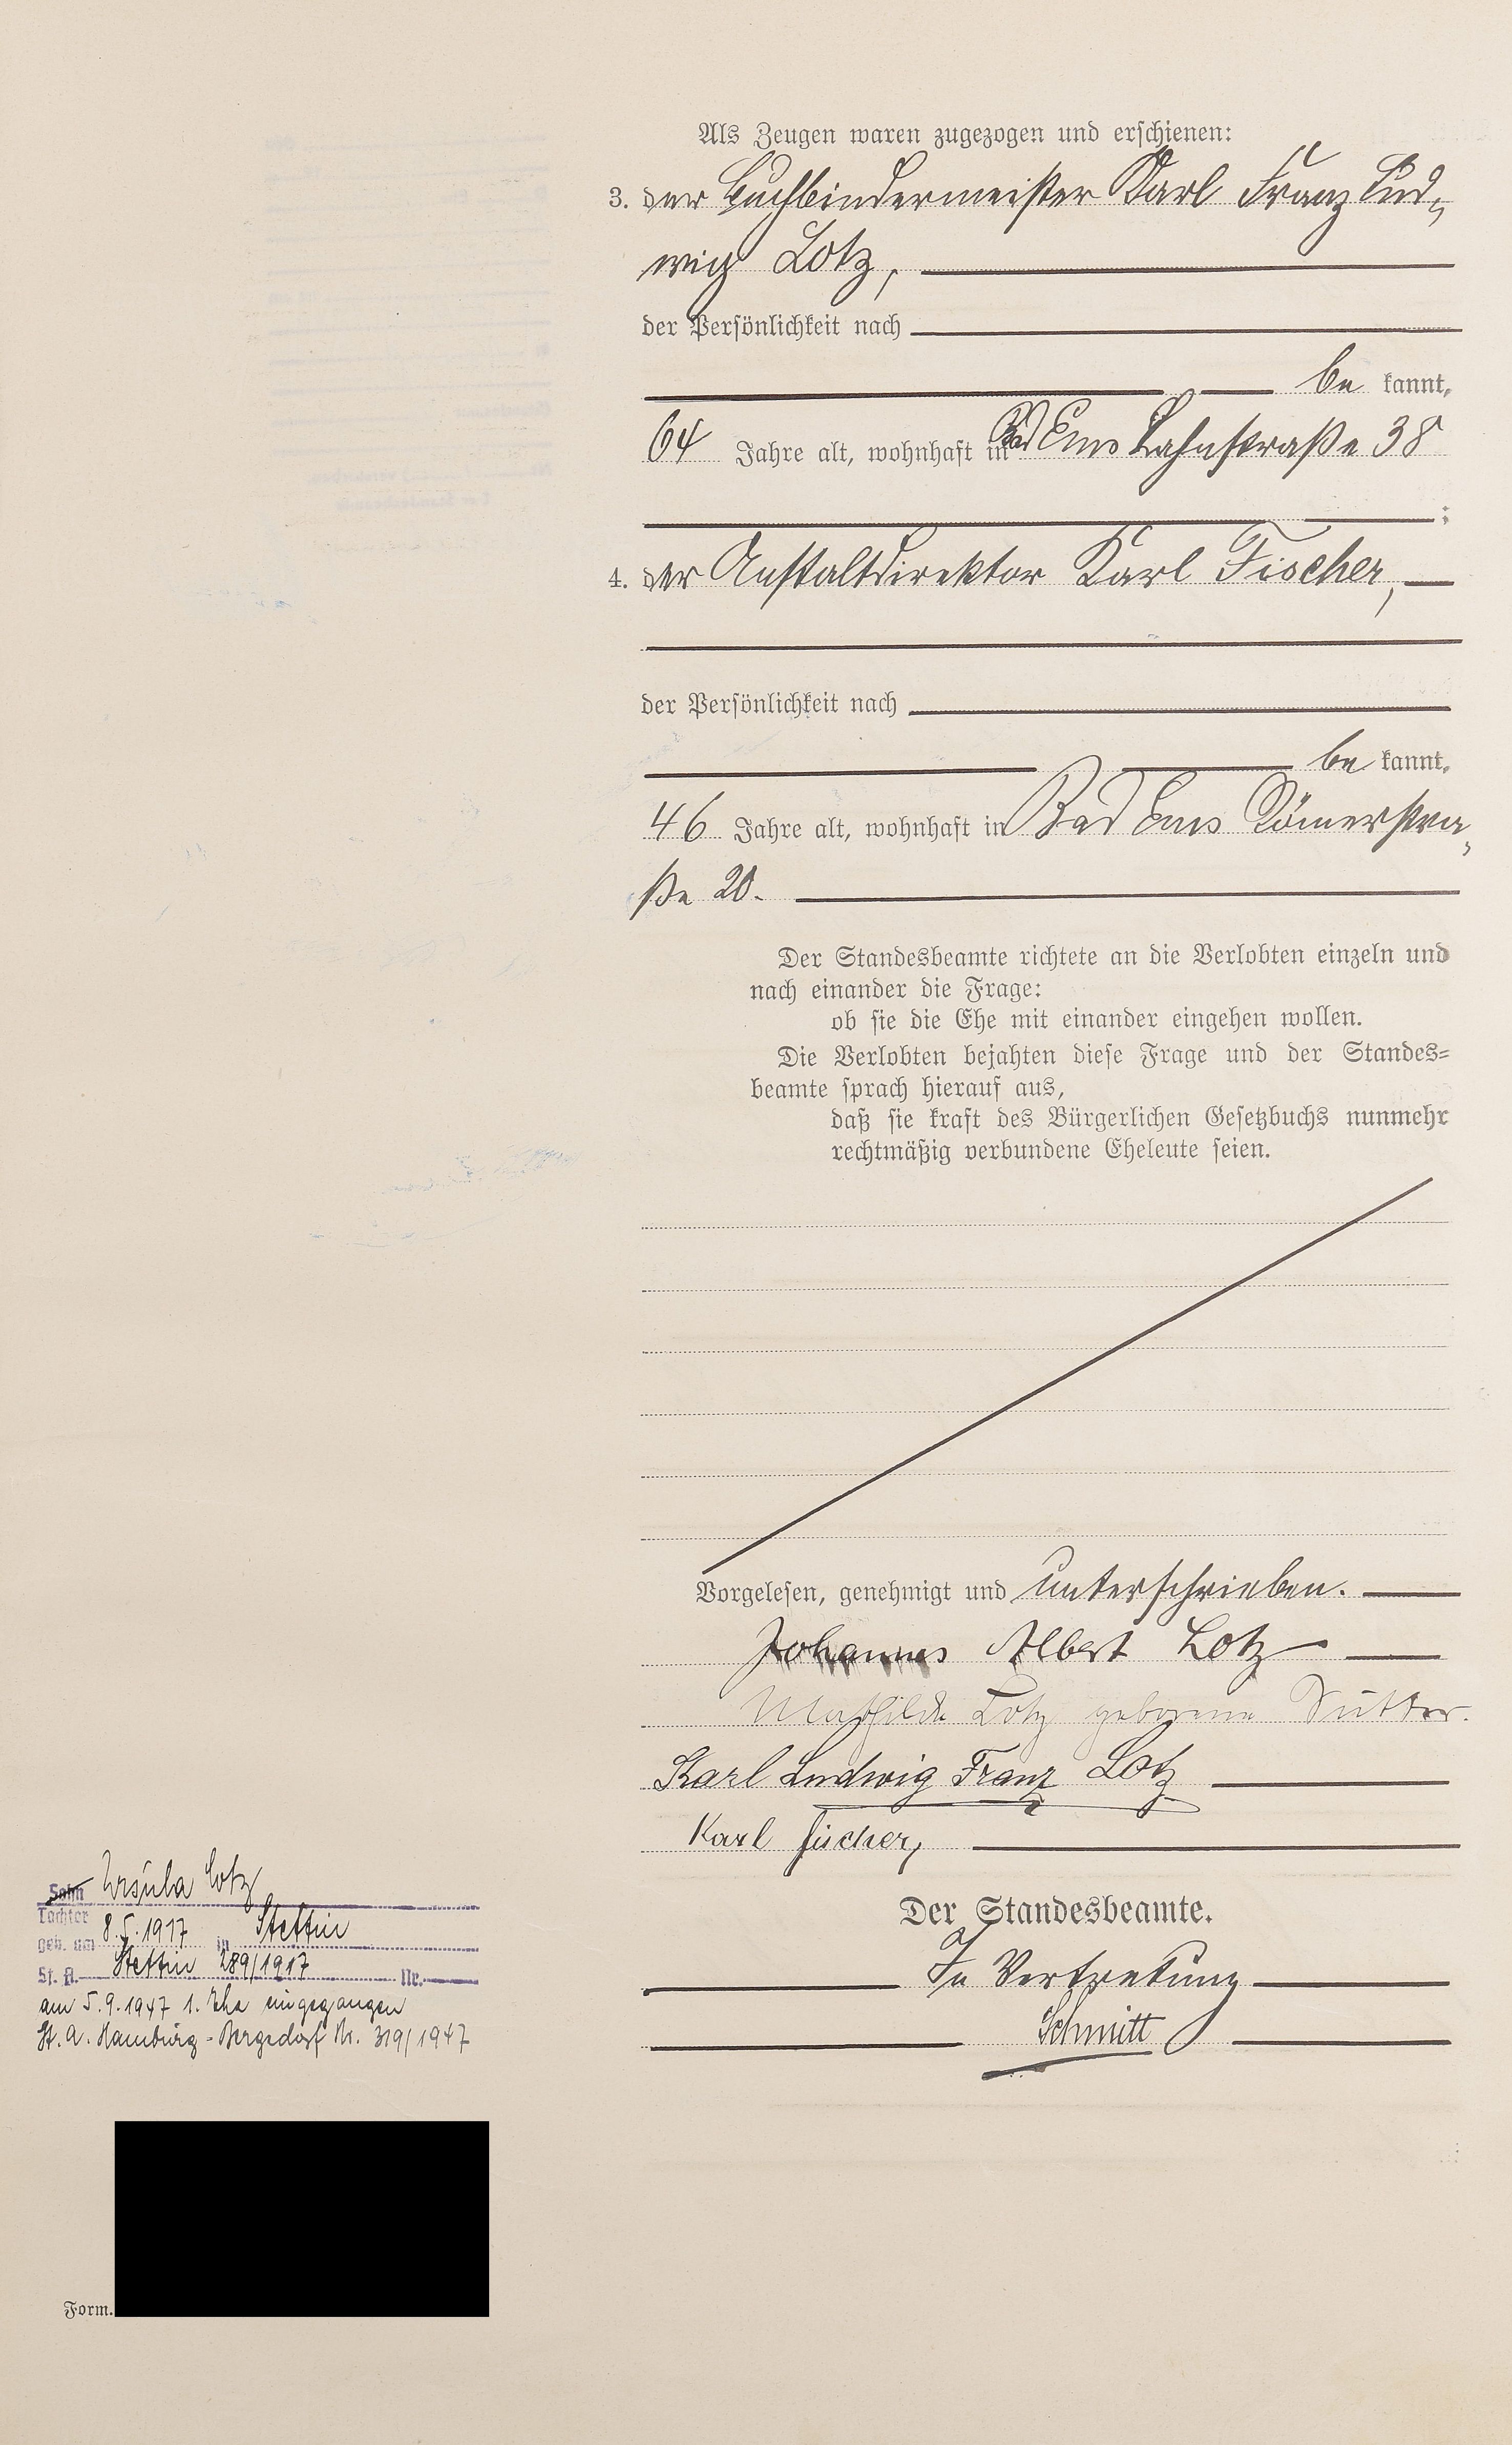 Als Zeugen waren zugezogen und erschienen:
3. der Buchbindermeister Karl Franz Lud-
wig Lotz,
der Persönlichkeit nach
be kannt,
64 Jahre alt, wohnhaft in Bad Ems Lahnstraße 38
;
4. der Anstaltdirektor Karl Fischer,
der Persönlichkeit nach
be kannt,
46 Jahre alt, wohnhaft in Bad Ems Römerstra-
ße 20.
Der Standesbeamte richtete an die Verlobten einzeln und
nach einander die Frage:
ob sie die Ehe mit einander eingehen wollen.
Die Verlobten bejahten diese Frage und der Standes=
beamte sprach hierauf aus,
daß sie kraft des Bürgerlichen Gesetzbuchs nunmehr
rechtmäßig verbundene Eheleute seien.
Vorgelesen, genehmigt und unterschrieben.
Johannes Albert Lotz
Mathilde Lotz geborene Sutter.
Karl Ludwig Franz Lotz
Karl Fischer,
Der Standesbeamte.
In Vertretung
Schmitt
Sohn Ursula Lotz
Tochter
geb. am 8.5.1917 in Stettin
St. A. Stettin 289/1917 Nr.
am 5.9.1947 1. Ehe eingegangen
St. A. Hamburg-Bergedorf Nr. 319/1947
Form.